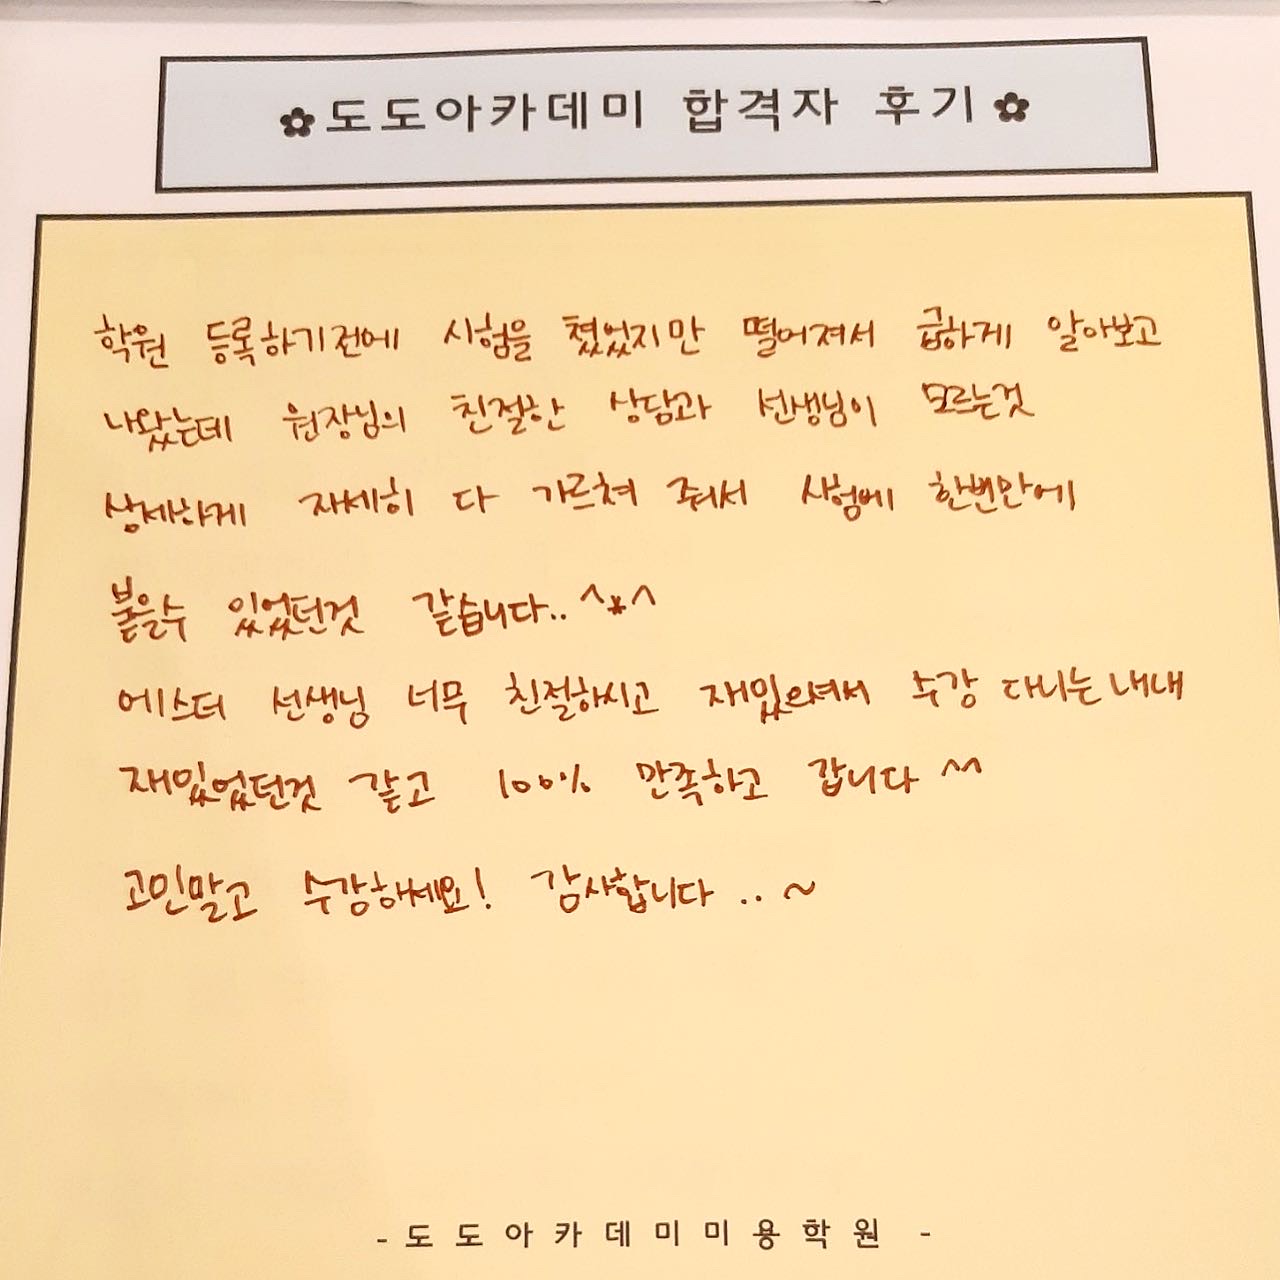 ✿도도아카데미 합격자 후기✿
학원 등록하기전에 시험을 쳤었지만 떨어져서 급하게 알아보고
나왔는데 원장님의 친절한 상담과 선생님이 모르는것
상세하게 자세히 다 가르쳐 줘서 시험에 한번만에
붙을수 있었던것 같습니다.. ^*^
에스터 선생님 너무 친절하시고 재밌으셔서 수강 다니는내내
재밌었던것 같고 100% 만족하고 갑니다 ^^
고민말고 수강하세요! 감사합니다 .. ~
- 도도아카데미미용학원 -